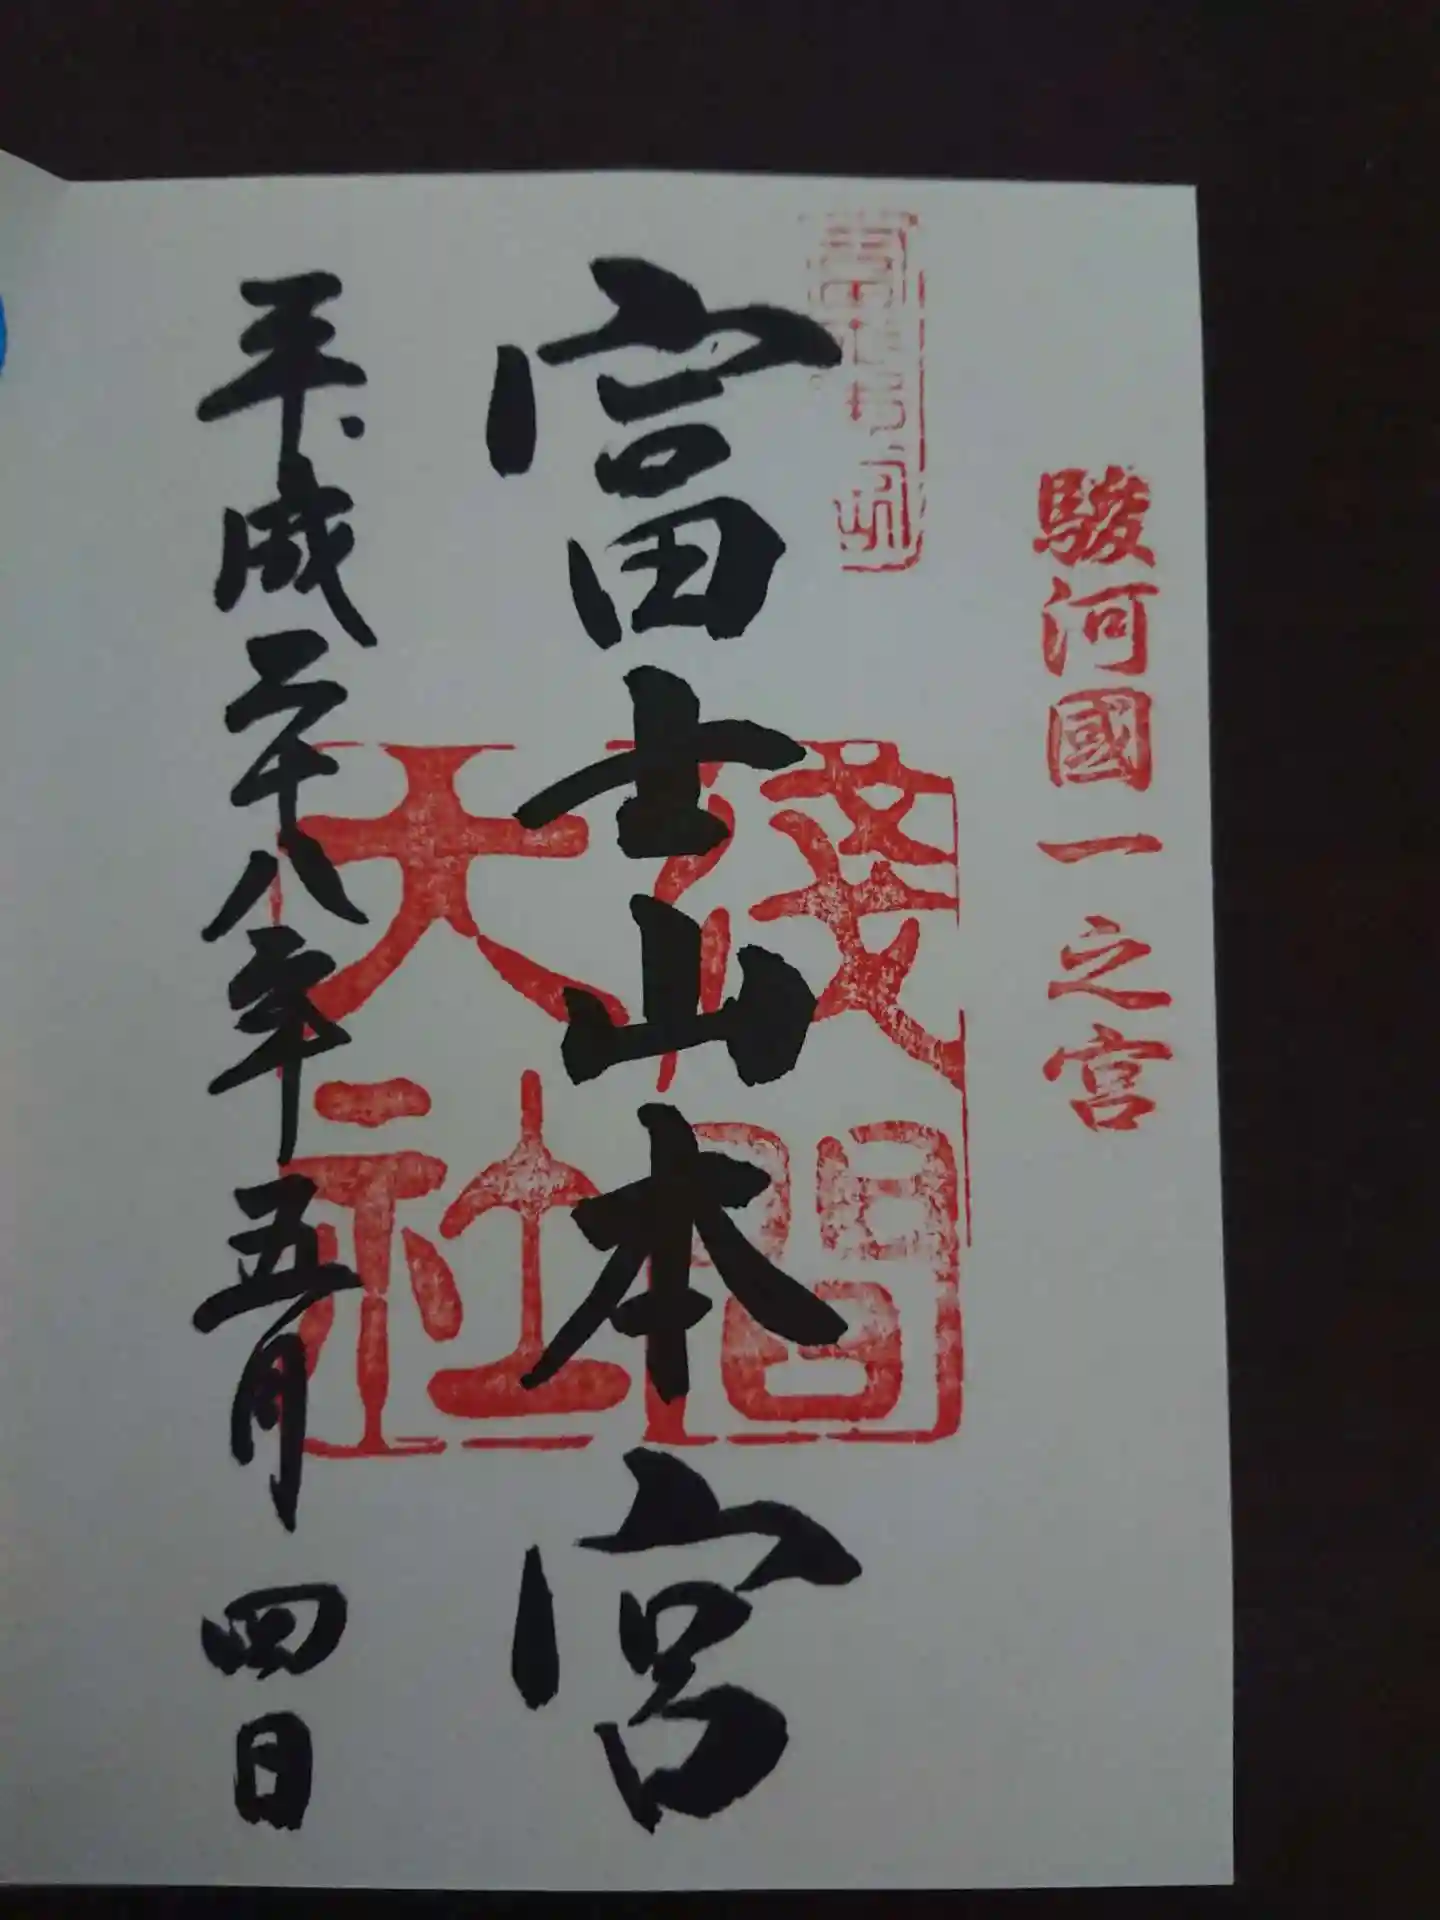 駿河國一之宮
富士山本宮
淺間大社
平成二十八年五月四日